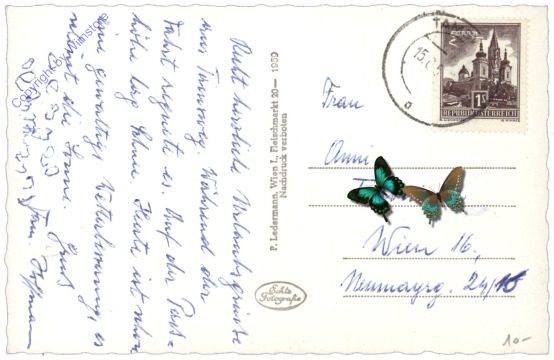 Recht herzliche Urlaubsgrüße
aus Tamsweg. Während der
Fahrt regnete es. Auf der Pass-
höhe lag Schnee. Heute ist schon
eine gewaltige Wetterbesserung, es
scheint die Sonne. Gruß
Fam. Hoffmann
Copyright by Wienstore
P. Ledermann, Wien I., Fleischmarkt 20 — 1959
Nachdruck verboten
Echte
Fotografie
TAM
15.
1S
REPUBLIK ÖSTERREICH
Frau
Anni
Wien 16.
Neumayrg. 24/
10-